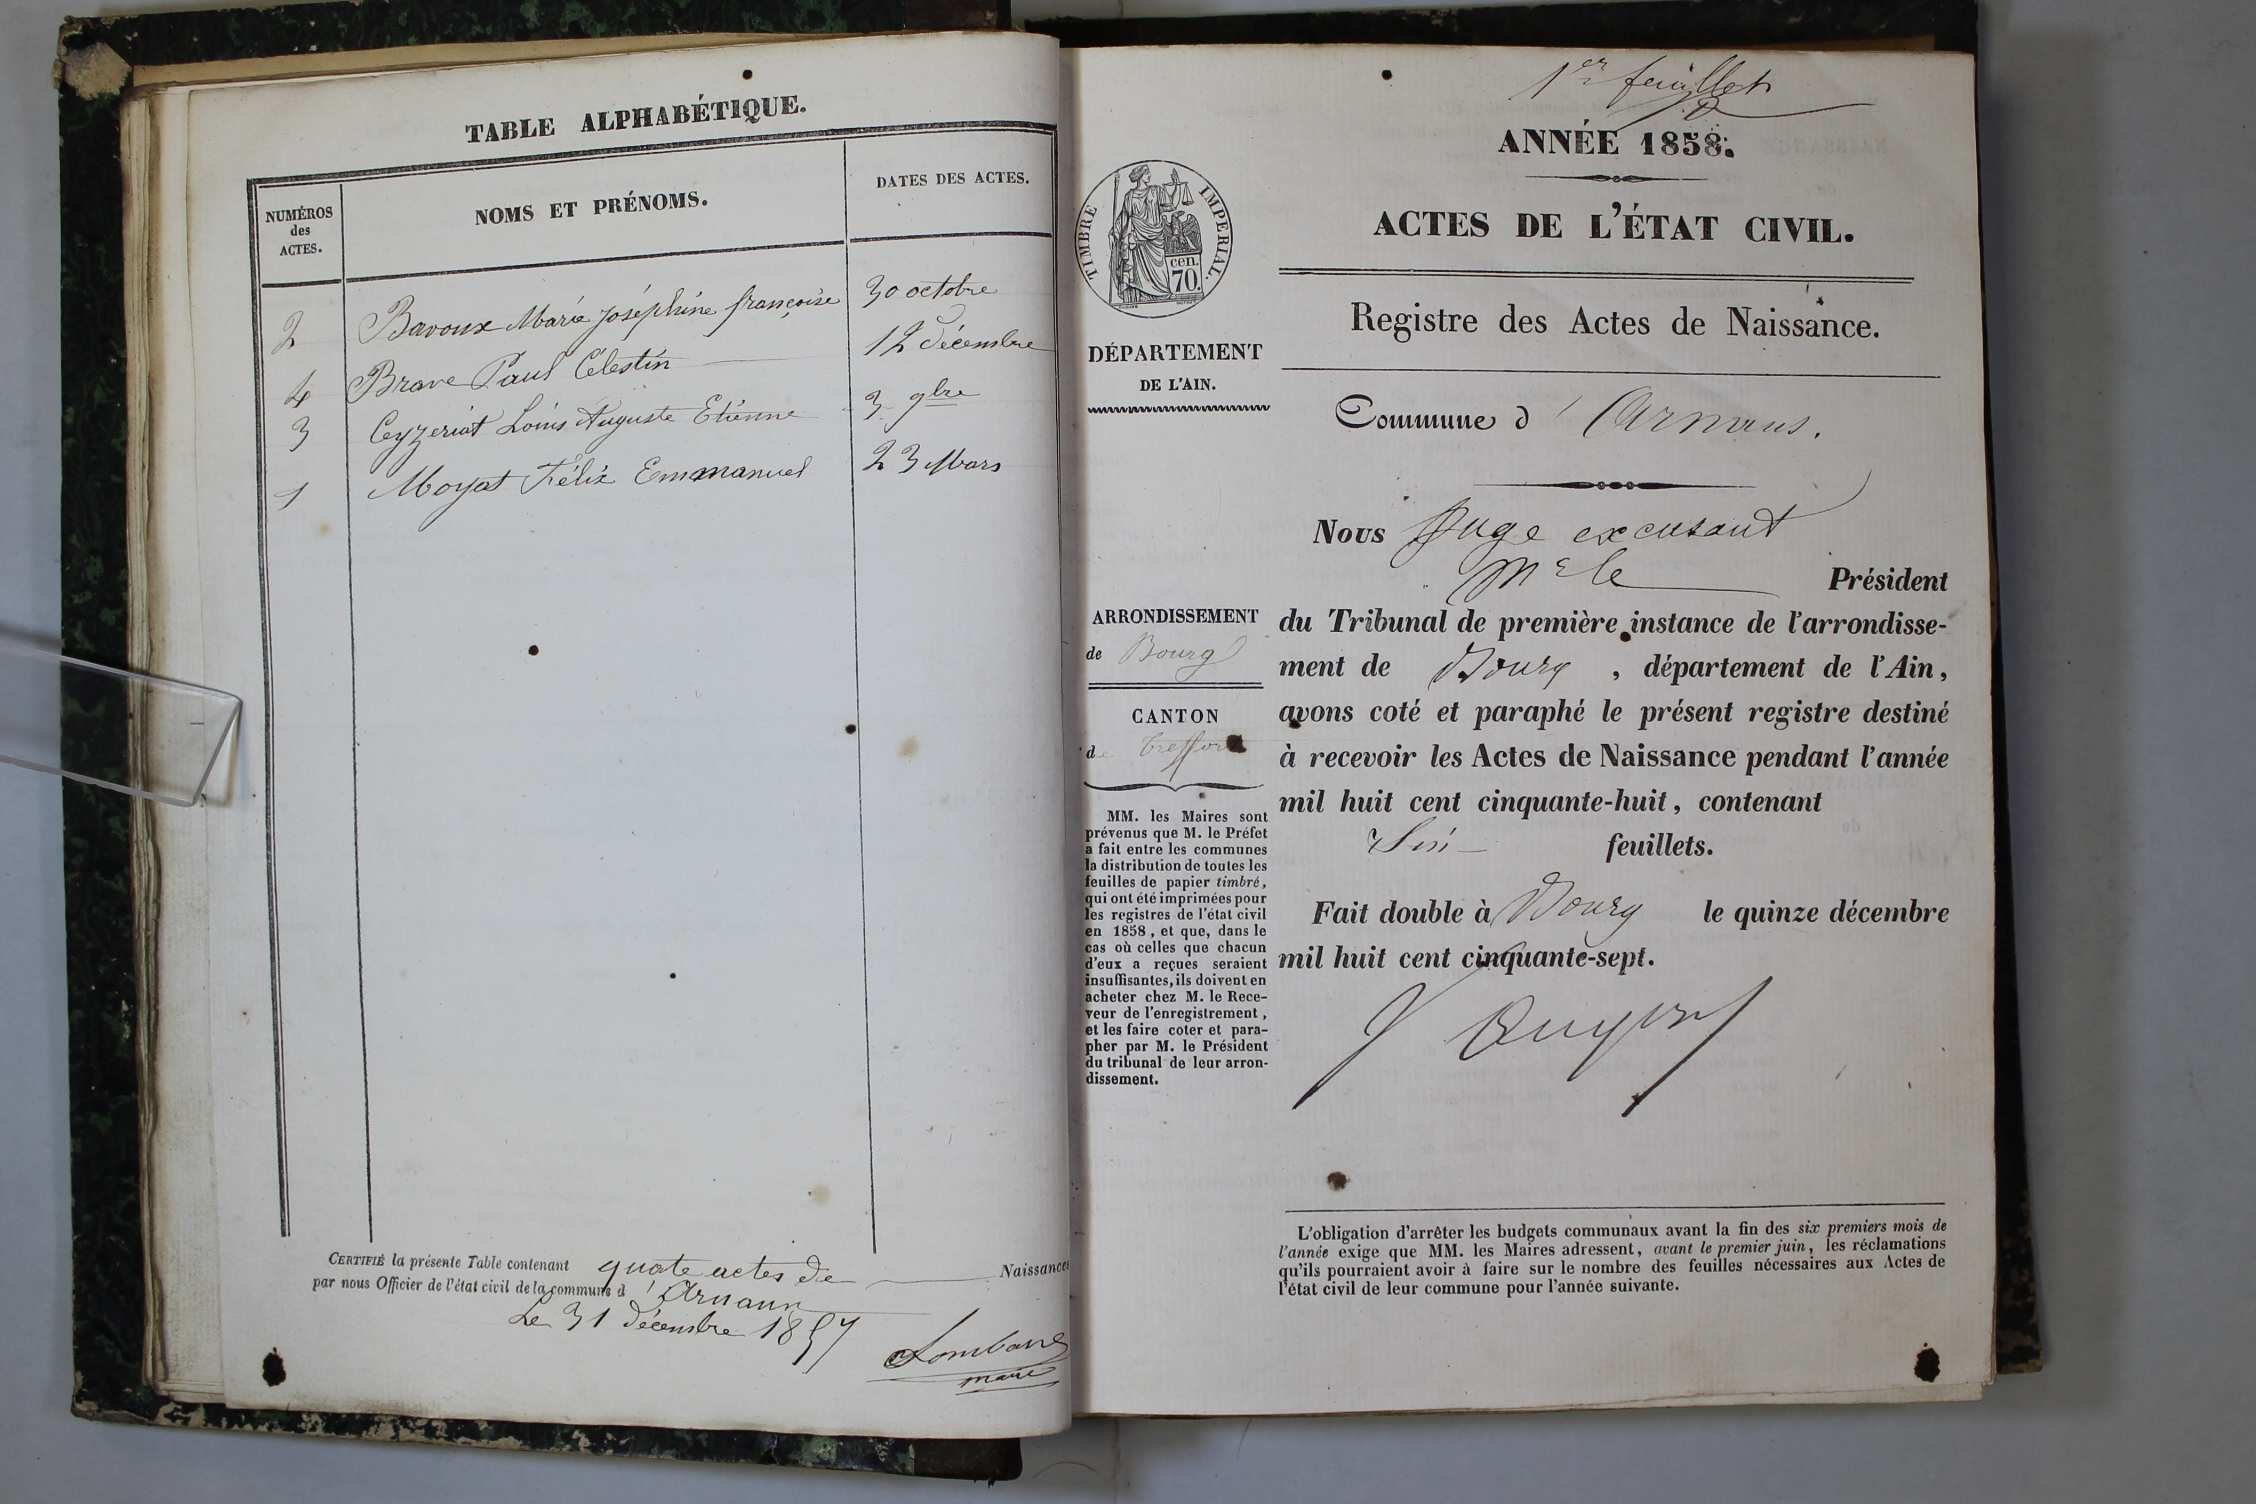 TABLE ALPHABÉTIQUE.
NUMÉROS des ACTES.
NOMS ET PRÉNOMS.
DATES DES ACTES.
2 Bavoux Marie Joséphine françoise 30 octobre
4 Brave Paul Célestin 12 décembre
3 Ceyzeriat Louis Auguste Etienne 3 9bre
1 Moyat Félix Emmanuel 23 Mars
CERTIFIÉ la présente Table contenant quate actes de Naissances
par nous Officier de l'état civil de la commune d'Arnans
Le 31 décembre 1857
maire
1er feuillet
ANNÉE 1858.
ACTES DE L'ÉTAT CIVIL.
TIMBRE IMPERIAL.
cen.
70.
Registre des Actes de Naissance.
DÉPARTEMENT
DE L'AIN.
Commune d'Arnans.
ARRONDISSEMENT
de Bourg
CANTON
de Treffort
MM. les Maires sont
prévenus que M. le Préfet
a fait entre les communes
la distribution de toutes les
feuilles de papier timbré,
qui ont été imprimées pour
les registres de l'état civil
en 1858, et que, dans le
cas où celles que chacun
d'eux a reçues seraient
insuffisantes, ils doivent en
acheter chez M. le Rece-
veur de l'enregistrement,
et les faire coter et para-
pher par M. le Président
du tribunal de leur arron-
dissement.
Nous Juge excusant
Mr le Président
du Tribunal de première instance de l'arrondisse-
ment de Bourg, département de l'Ain,
avons coté et paraphé le présent registre destiné
à recevoir les Actes de Naissance pendant l'année
mil huit cent cinquante-huit, contenant
feuillets.
Fait double à Bourg le quinze décembre
mil huit cent cinquante-sept.
L'obligation d'arrêter les budgets communaux avant la fin des six premiers mois de
l'année exige que MM. les Maires adressent, avant le premier juin, les réclamations
qu'ils pourraient avoir à faire sur le nombre des feuilles nécessaires aux Actes de
l'état civil de leur commune pour l'année suivante.